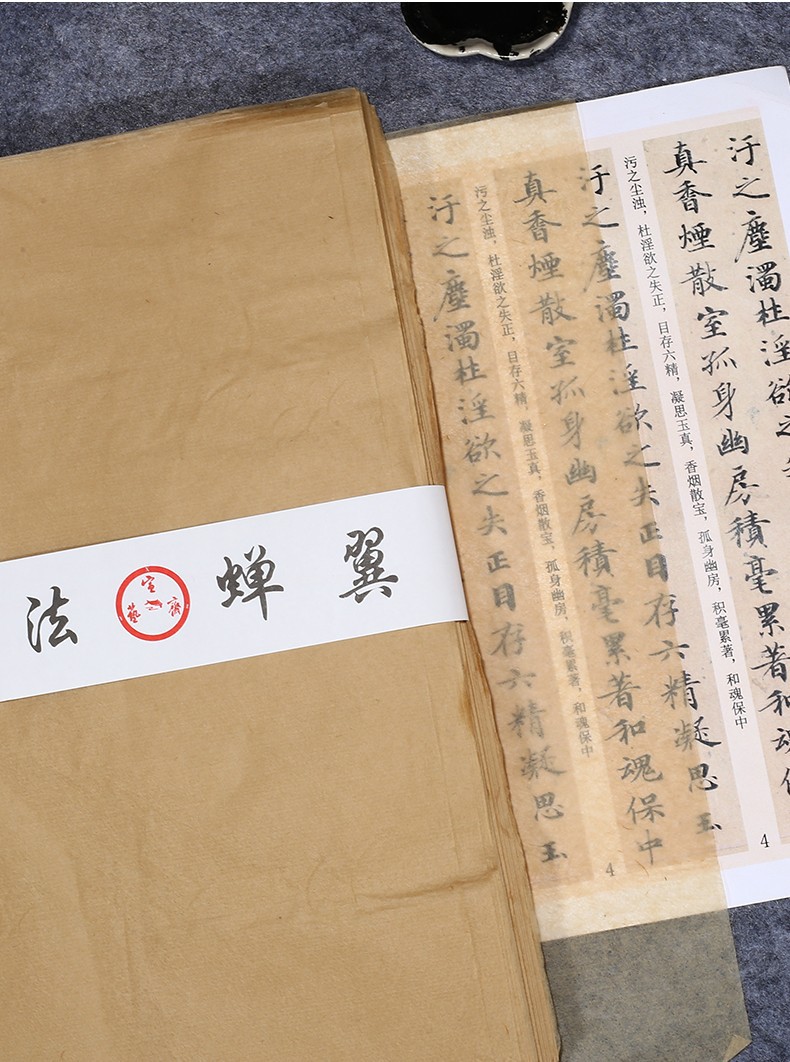 汙之塵濁杜淫欲之
真香煙散室孤身幽房積毫累著和魂保
污之尘浊，杜淫欲之失正，目存六精，凝思玉真，香烟散宝，孤身幽房，积毫累著，和魂保中
汙之塵濁杜淫欲之失正目存六精凝思玉
真香煙散室孤身幽房積毫累著和魂保中
污之尘浊，杜淫欲之失正，目存六精，凝思玉真，香烟散宝，孤身幽房，积毫累著，和魂保中
汙之塵濁杜淫欲之失正目存六精凝思玉
4
4
法蝉翼
宣藝齋